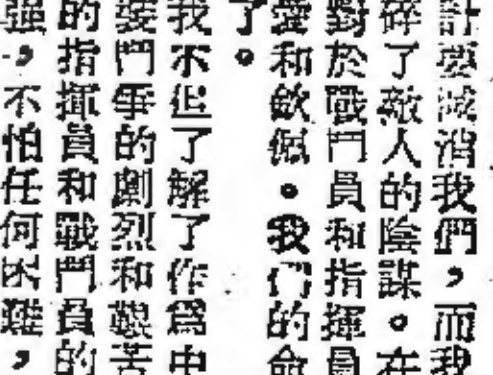 計要滅消我們，而我
碎了敵人的陰謀。在
對於戰鬥員和指揮員
愛和欽佩。我們的命
了。
我不但了解了作爲中
裝鬥爭的劇烈和艱苦
的指揮員和戰鬥員的
强，不怕任何困難，